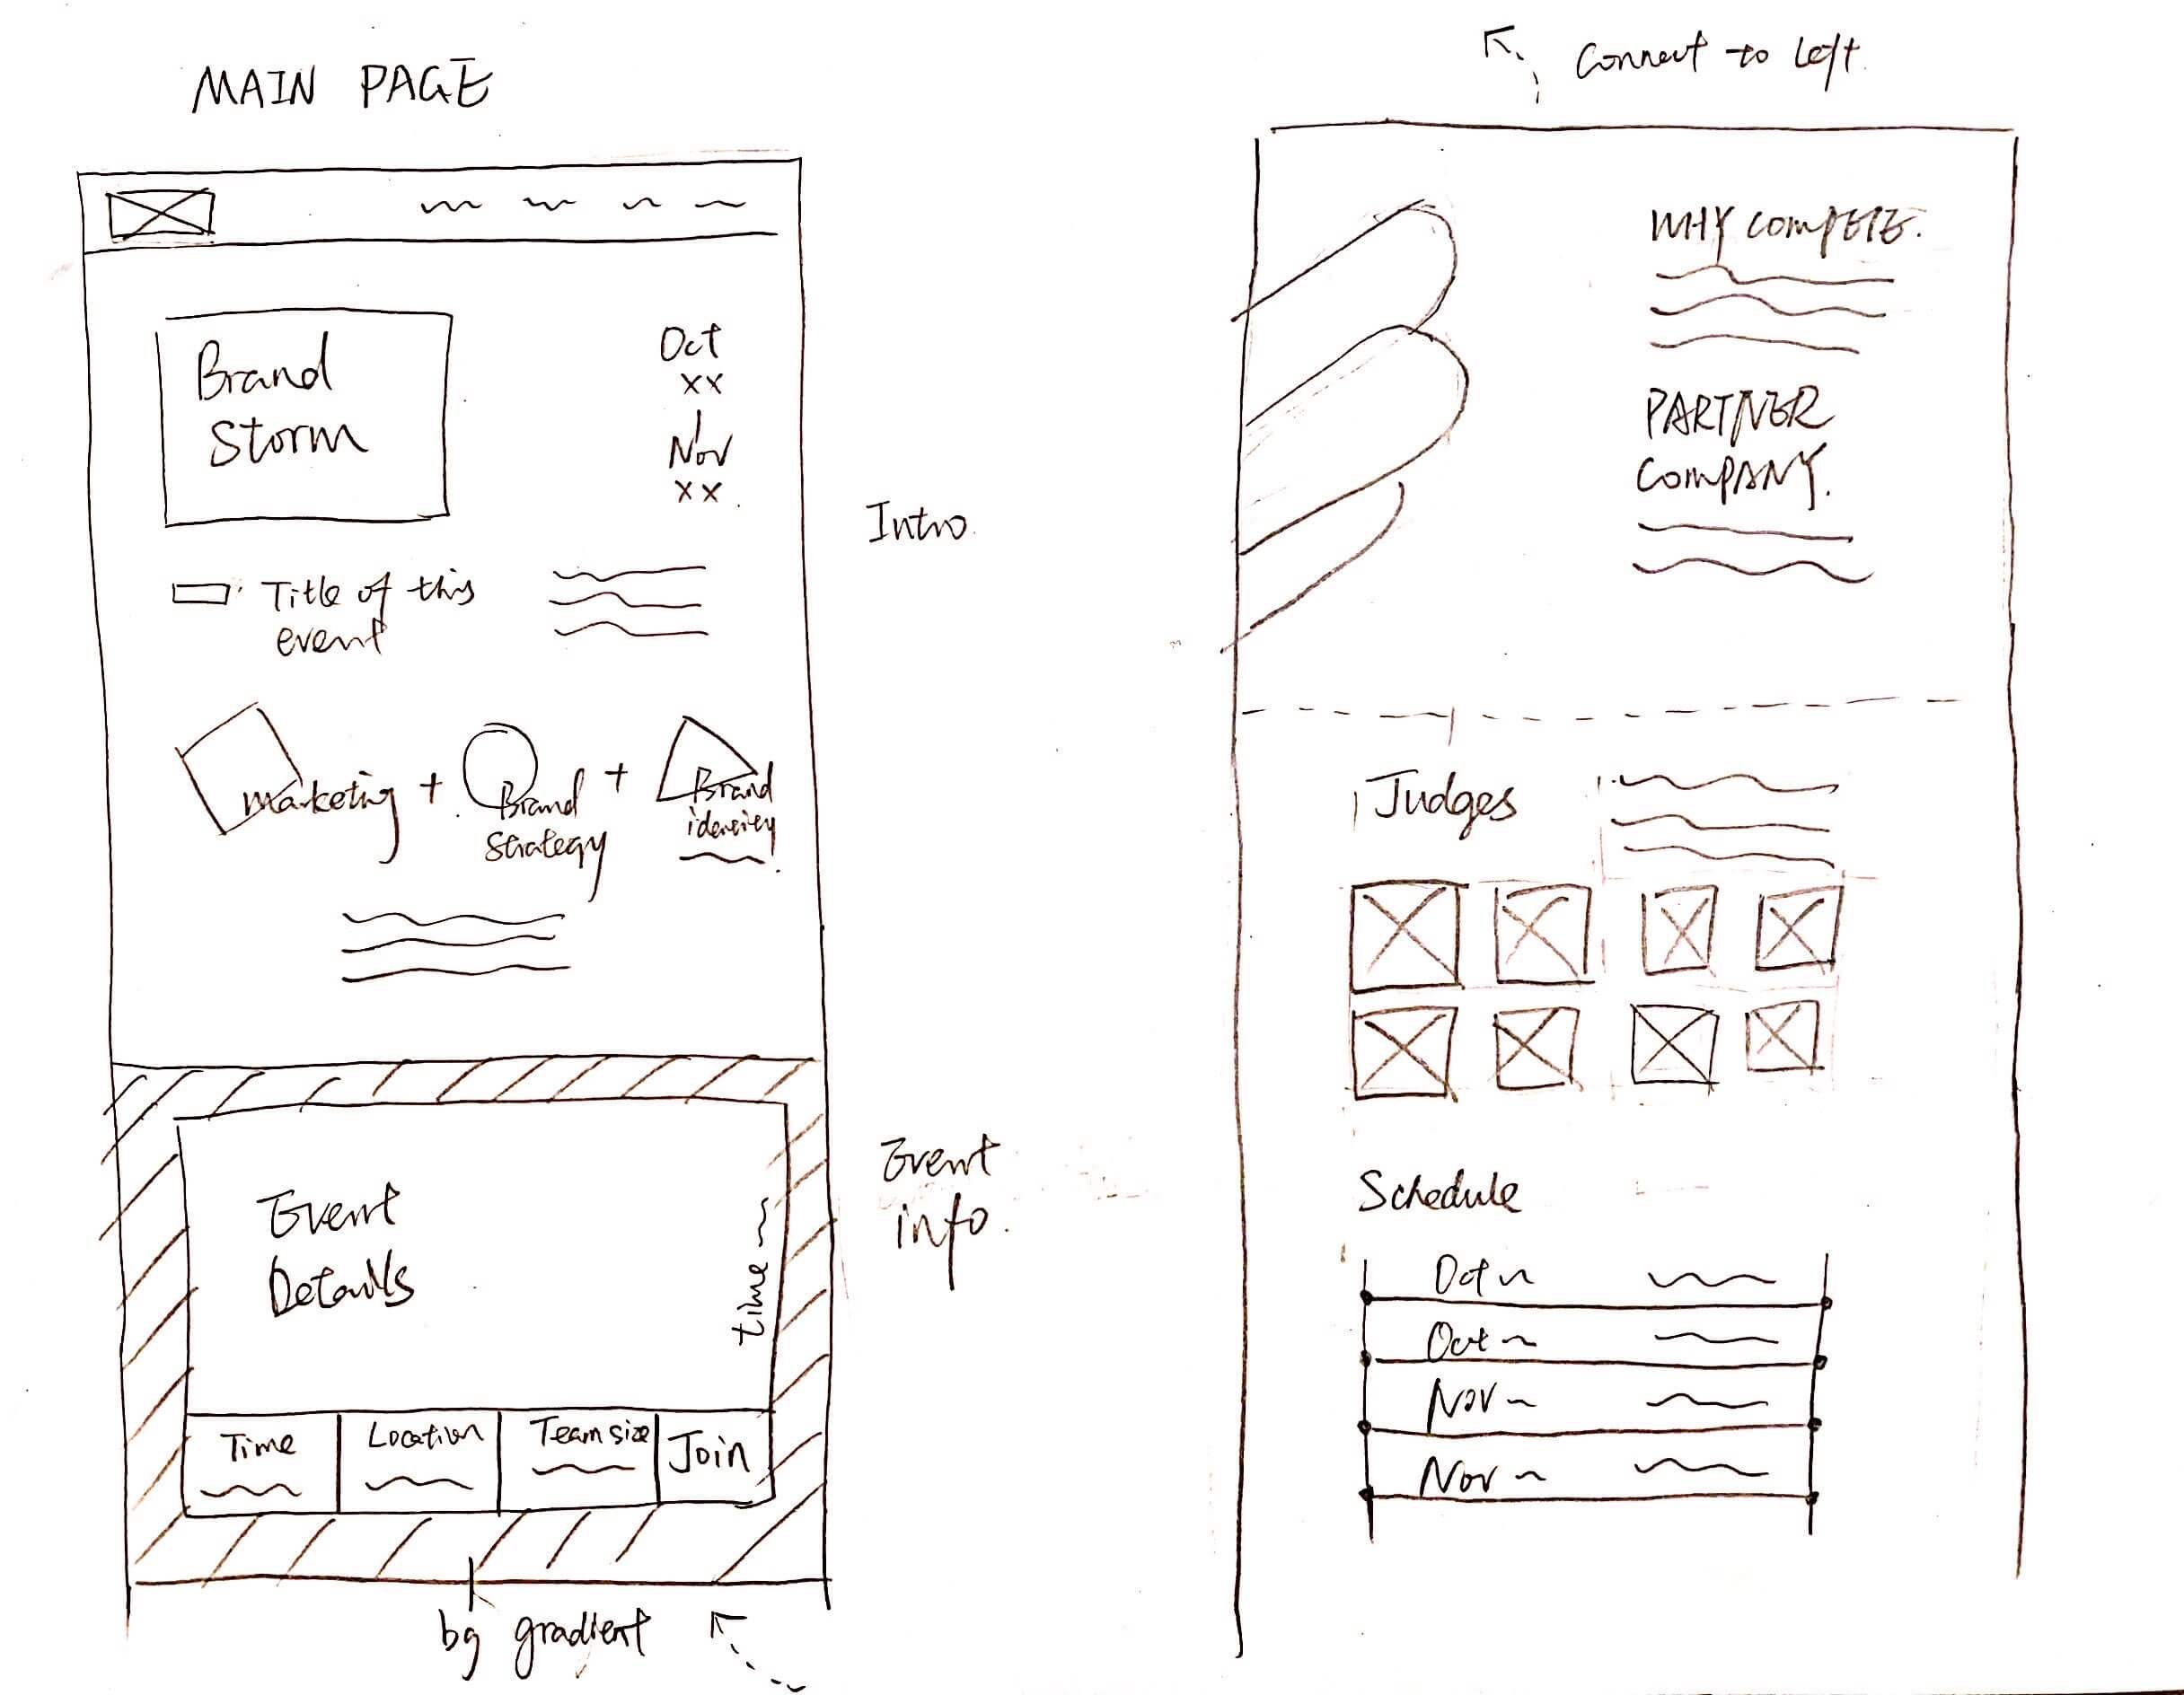 MAIN PAGE
Brand
Storm
Oct
xx
Nov
xx
Intro
Title of this
event
Marketing + Brand
strategy + Brand
identity
Event
Details
time
Event
info
Time
Location
Team size
Join
bg gradient
Connect to left
WHY COMPETE.
PARTNER
COMPANY.
Judges
Schedule
Oct
Oct
Nov
Nov